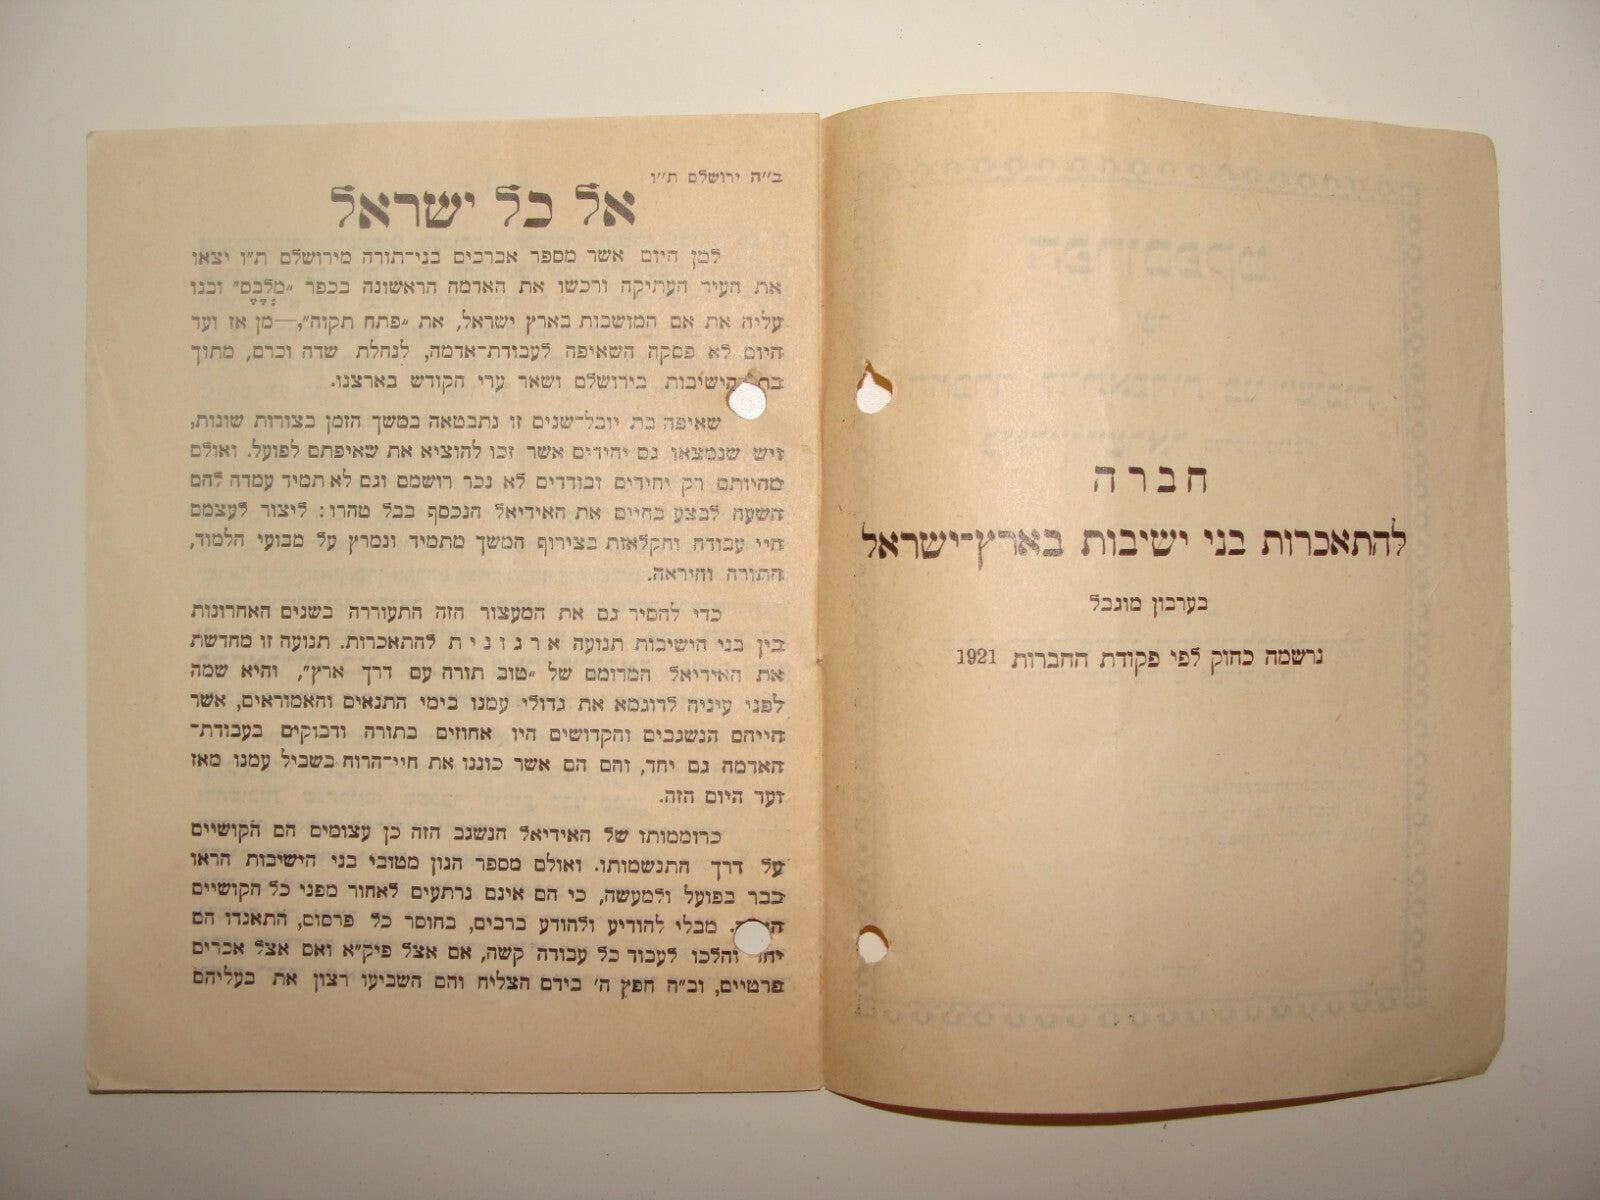 חברה
להתאכרות בני ישיבות בארץ־ישראל
בערבון מוגבל
נרשמה כחוק לפי פקודת החברות 1921
ב"ה ירושלם ת"ו
אל כל ישראל
למן היום אשר מספר אברכים בני־תורה מירושלם ת"ו יצאו
את העיר העתיקה ורכשו את האדמה הראשונה בכפר „מלבס" ובנו
עליה את אם המושבות בארץ ישראל, את „פתח תקוה",—מן אז ועד
היום לא פסקה השאיפה לעבודת־אדמה, לנחלת שדה וכרם, מתוך
הישיבות בירושלם ושאר ערי הקודש בארצנו.
שאיפה בת יובל־שנים זו נתבטאה במשך הזמן בצורות שונות,
ויש שנמצאו גם יחידים אשר זכו להוציא את שאיפתם לפועל. ואולם
מהיותם רק יחידים ובודדים לא נכר רושמם וגם לא תמיד עמדה להם
השעה לבצע בחיים את האידיאל הנכסף בכל טהרו: ליצור לעצמם
חיי עבודה וחקלאות בצירוף המשך מתמיד ונמרץ על מבועי הלמוד,
התורה והיראה.
כדי להסיר גם את המעצור הזה התעוררה בשנים האחרונות
בין בני הישיבות תנועה ארגונית להתאכרות. תנועה זו מחדשת
את האידיאל המרומם של „טוב תורה עם דרך ארץ", והיא שמה
לפני עיניה לדוגמא את גדולי עמנו בימי התנאים והאמוראים, אשר
חייהם הנשגבים והקדושים היו אחוזים בתורה ודבוקים בעבודת־
האדמה גם יחד, והם הם אשר כוננו את חיי־הרוח בשביל עמנו מאז
ועד היום הזה.
כרוממותו של האידיאל הנשגב הזה כן עצומים הם הקושיים
על דרך התגשמותו. ואולם מספר הגון מטובי בני הישיבות הראו
כבר בפועל ולמעשה, כי הם אינם נרתעים לאחור מפני כל הקושיים
מבלי להודיע ולהודע ברבים, בחוסר כל פרסום, התאגדו הם
והלכו לעבוד כל עבודה קשה, אם אצל פיק"א ואם אצל אכרים
פרטיים, וב"ה חפץ ה' בידם הצליח והם השביעו רצון את בעליהם